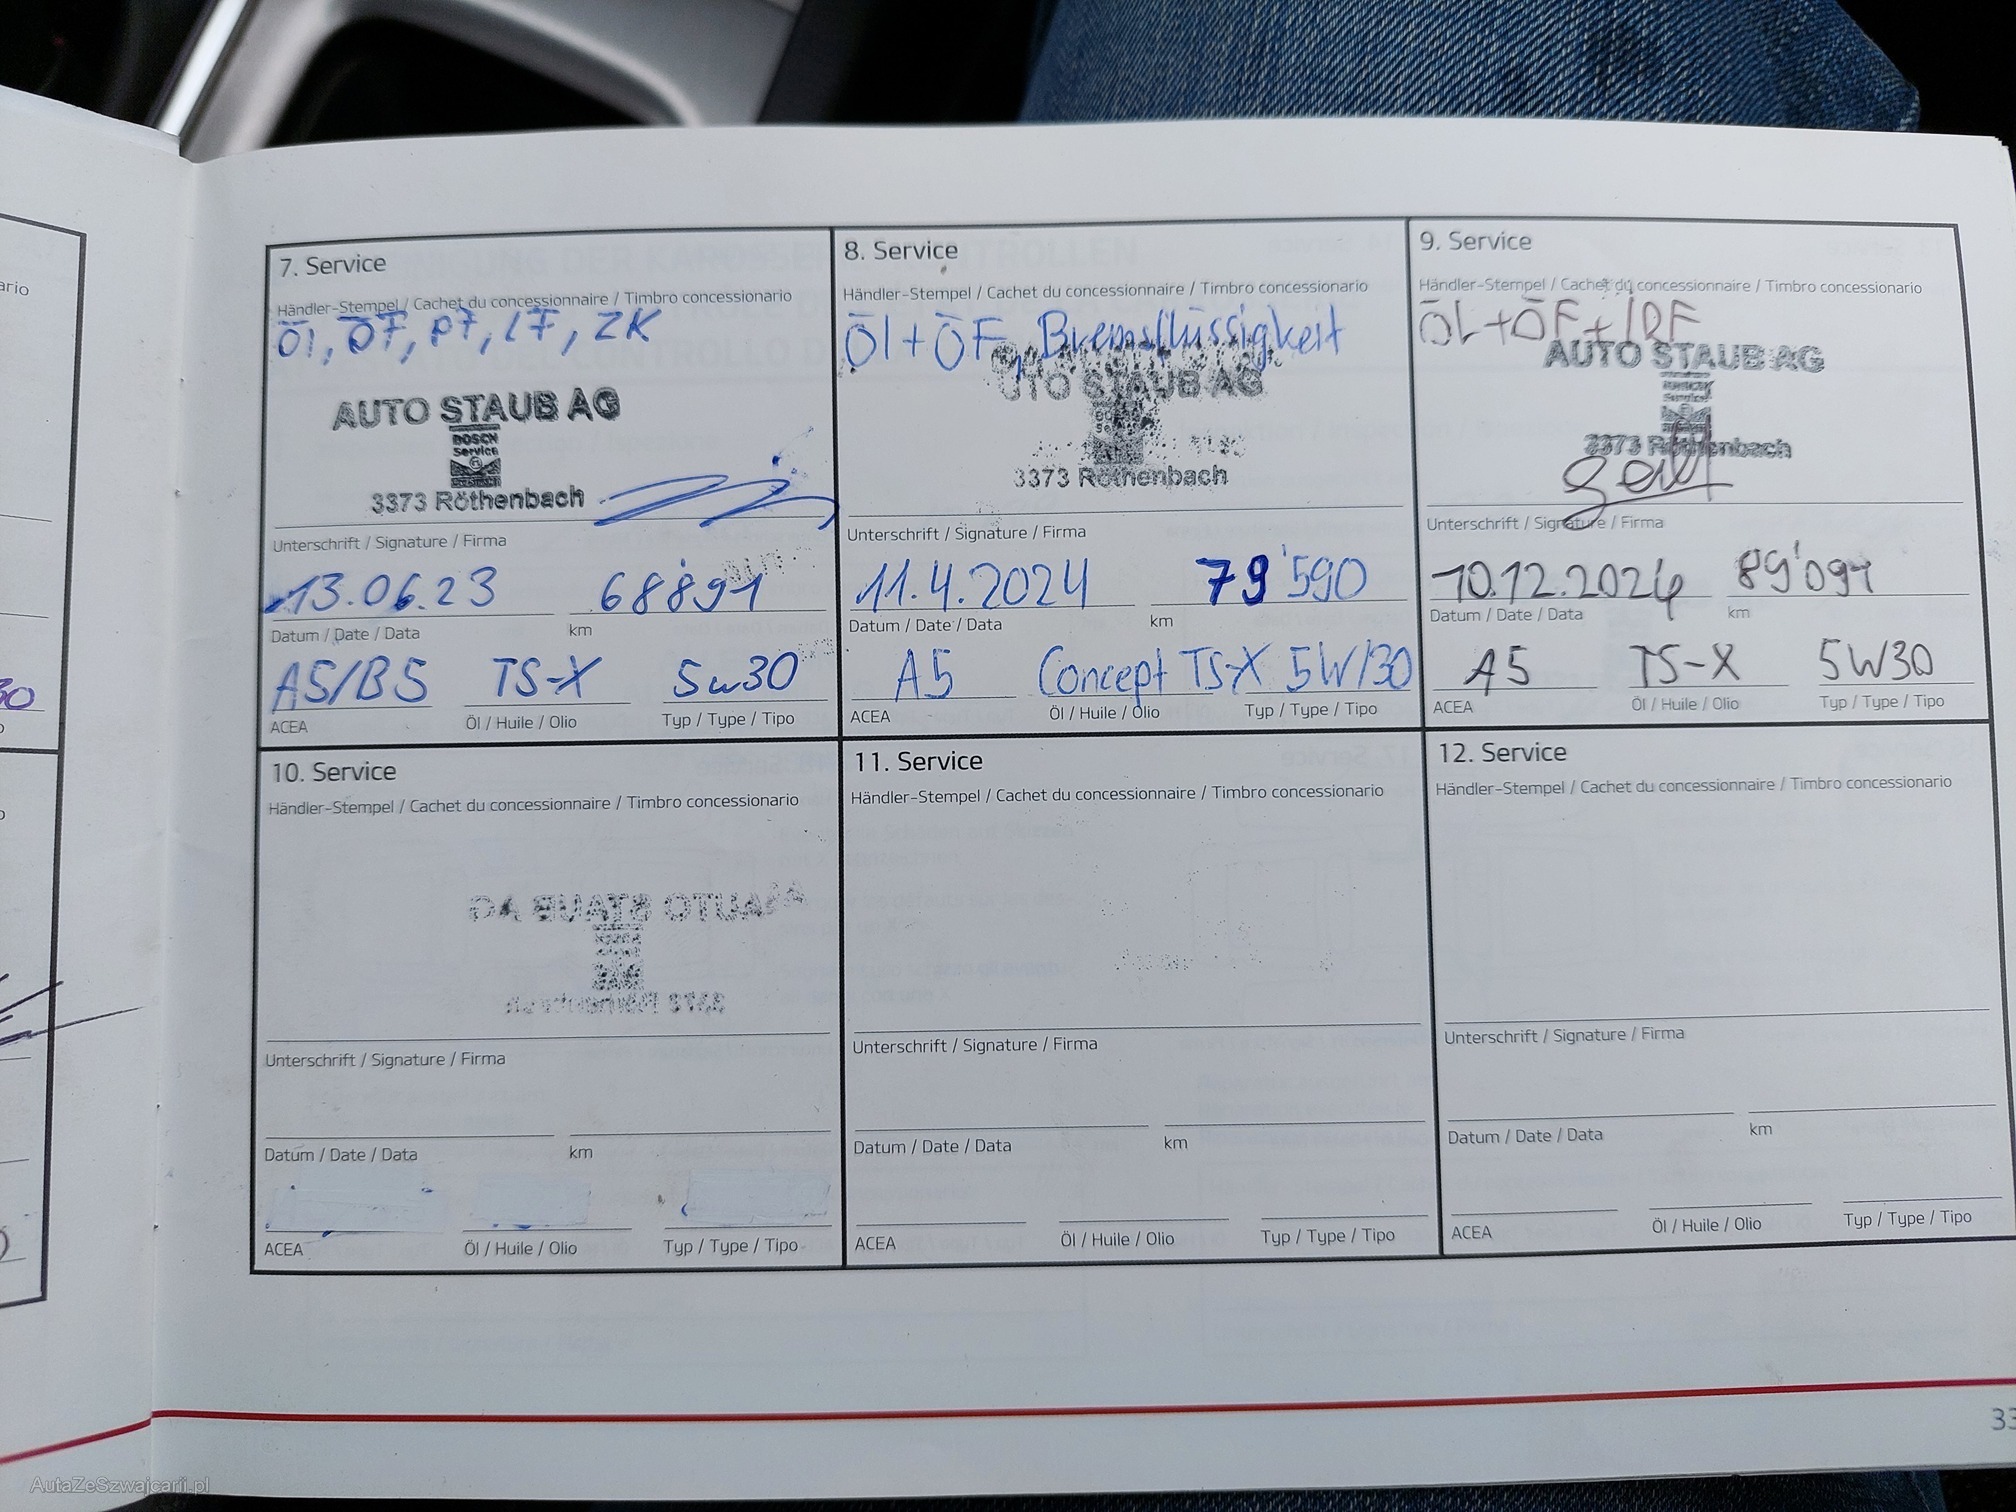 7. Service
Händler-Stempel / Cachet du concessionnaire / Timbro concessionario
Öl, ÖF, PF, LF, ZK
AUTO STAUB AG
BOSCH
Service
3373 Röthenbach
Unterschrift / Signature / Firma
13.06.23 68891
Datum / Date / Data km
A5/B5 TS-X 5w30
ACEA Öl / Huile / Olio Typ / Type / Tipo
8. Service
Händler-Stempel / Cachet du concessionnaire / Timbro concessionario
Öl + ÖF, Bremsflüssigkeit
UTO STAUB AG
3373 Röthenbach
Unterschrift / Signature / Firma
11.4.2024 79'590
Datum / Date / Data km
A5 Concept TS-X 5W/30
ACEA Öl / Huile / Olio Typ / Type / Tipo
9. Service
Händler-Stempel / Cachet du concessionnaire / Timbro concessionario
ÖL+ÖF+IRF
AUTO STAUB AG
Service
3373 Röthenbach
Unterschrift / Signature / Firma
10.12.2024 89'091
Datum / Date / Data km
A5 TS-X 5W30
ACEA Öl / Huile / Olio Typ / Type / Tipo
10. Service
Händler-Stempel / Cachet du concessionnaire / Timbro concessionario
AUTO STAUB AG
Unterschrift / Signature / Firma
Datum / Date / Data km
ACEA Öl / Huile / Olio Typ / Type / Tipo
11. Service
Händler-Stempel / Cachet du concessionnaire / Timbro concessionario
Unterschrift / Signature / Firma
Datum / Date / Data km
ACEA Öl / Huile / Olio Typ / Type / Tipo
12. Service
Händler-Stempel / Cachet du concessionnaire / Timbro concessionario
Unterschrift / Signature / Firma
Datum / Date / Data km
ACEA Öl / Huile / Olio Typ / Type / Tipo
33
AutaZeSzwajcarii.pl